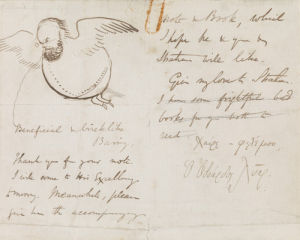 Beneficial & bricklike
Baring,
Thank you for your note.
I will come to His Excellency
tomorrow. Meanwhile, please
give him the accompanying
note & Book, which
I hope he & you &
Strahan will like.
Give my love to Strahan.
I have some frightful bad
books for you both to
read.